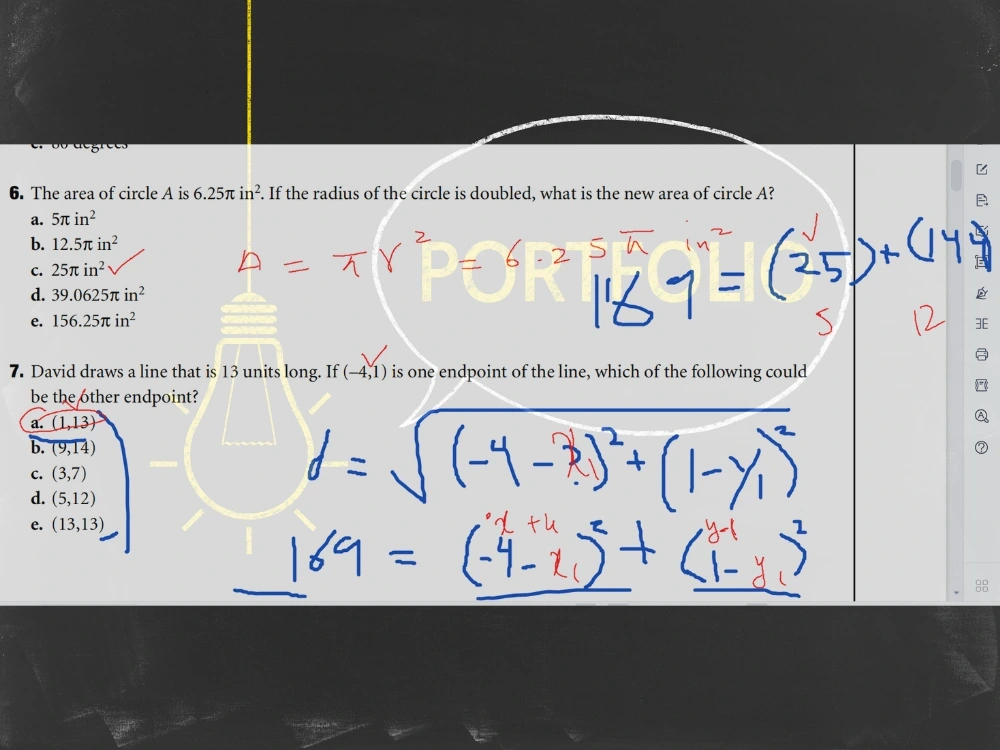 c. 60 degrees
6. The area of circle A is 6.25π in². If the radius of the circle is doubled, what is the new area of circle A?
a. 5π in²
b. 12.5π in²
c. 25π in² ✓
d. 39.0625π in²
e. 156.25π in²
A = πr² = 6.25 π in²
PORTFOLIO
169 = (25) + (144)
5 12
7. David draws a line that is 13 units long. If (–4,1) is one endpoint of the line, which of the following could
be the other endpoint?
a. (1,13)
b. (9,14)
c. (3,7)
d. (5,12)
e. (13,13)
d = √(-4 - x₁)² + (1 - y₁)²
x + 4 y-1
169 = (-4 - x₁)² + (1 - y₁)²